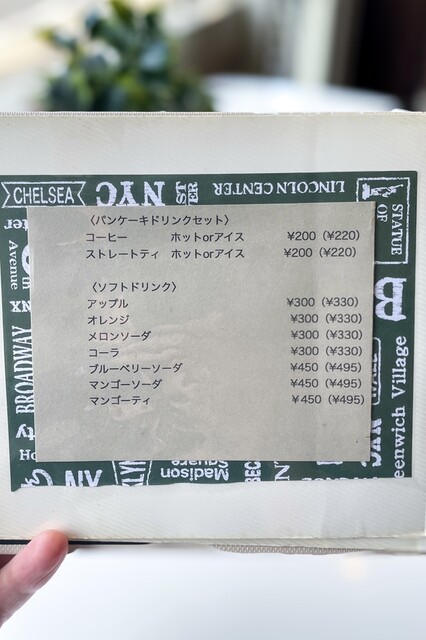 CHELSEA NYC LINCOLN CENTER
STATUE OF
Avenue
BROADWAY
Greenwich Village
〈パンケーキドリンクセット〉
コーヒー ホットorアイス ¥200（¥220）
ストレートティ ホットorアイス ¥200（¥220）
〈ソフトドリンク〉
アップル ¥300（¥330）
オレンジ ¥300（¥330）
メロンソーダ ¥300（¥330）
コーラ ¥300（¥330）
ブルーベリーソーダ ¥450（¥495）
マンゴーソーダ ¥450（¥495）
マンゴーティ ¥450（¥495）
Madison Square